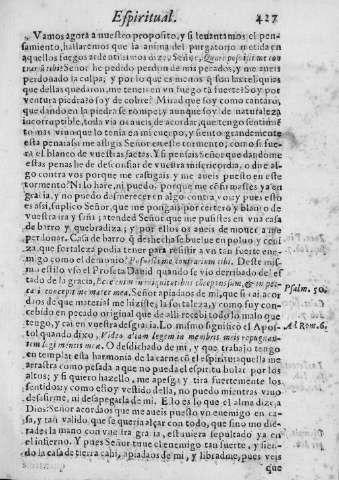 Espiritual. 427
Vamos agora a nuestro proposito, y si leuantamos el pen-
samiento, hallaremos que la anima del purgatorio metida en
aquellos fuegos ardentissimos dize; Señor, Quare posuisti me con
trarium tibi? Señor he pedido perdon de mis pecados, y me aueis
perdonado la culpa; y por lo que es menos q̃ son las reliquias
dellas quedaron, me teneis en vn fuego tã fuerte? Soy por
ventura piedra? o soy de cobre? Mirad que soy como cantaro,
que dando en la piedra se rompe; y aunque soy de naturaleza
incorruptible, toda via os aueis de acordar, que tengo sentimẽ
to mas viuo que lo tenia en mi cuerpo, y siento grandemente
esta pena: assi me afligis Señor en este tormento; como si fue-
ra el blanco de vuestras factas. Y si pensais Señor que dandome
estas penas he de desconfiar de vuestra misericordia, o dire al-
go contra vos porque me castigais y me aueis puesto en este
tormento? Ni lo hare, ni puedo; porque me cõfirmastes ya en
gracia, y no puedo desmerecer en algo contra vos: y pues esto
es assi, suplico Señor, que me pongais por certero y blanco de
vuestra ira y saña; atended Señor que me pusistes en vna casa
de barro y quebradiza; y por ellos os aneis de mouer a me
perdonar. Casa de barro q̃ deshecha se buelue en poluo y ceni
za, que fortaleza podia tener para resistir a vn tan fuerte ene-
migo como el demonio? Posuisti me contrarium tibi. Deste mis-
mo estilo vso el Profeta Dauid quando se vio derribado del es
tado de la gracia, Ecce enim in iniquitatibus conceptus sum, & in pec-
catis concepit me mater mea. Señor apiadaos de mi, que si acor-
dios de que material me hizistes, la fortaleza, y como fuy con-
cebido en pecado original que de alli recebi todo lo malo que
tengo, y caí en vuestra desgracia. Lo mismo significò el Apos-
tol quando dixo, Video aliam legem in membris meis repugnan-
tem legi mentis meæ. O desdichado de mi, y que trabajo tengo
en templar esta harmonia de la carne cõ el espiritu; aquella me
arrastra como pesada a que no pueda el espiritu bolar por los
altos; y si quiero hazello, me apesga y tira fuertemente los
sentidos; y como estoy vestido della, no puedo mientras viuo
desasirme, ni desapegarla de mi. Esto es lo que el alma dize a
Dios: Señor acordaos que me aueis puesto vn enemigo en ca-
sa, y tan valido, que se queria alçar con todo, que sino me die-
rades la mano con vuestra gracia, estuuiera sepultado ya en
el infierno. Y pues Señor tuue el enemigo tan fuerte, y sien-
do la casa de tierra cahi, apiadaos de mi, y libradme, pues veis
que
Psalm. 50.
Ad Rom. 6.